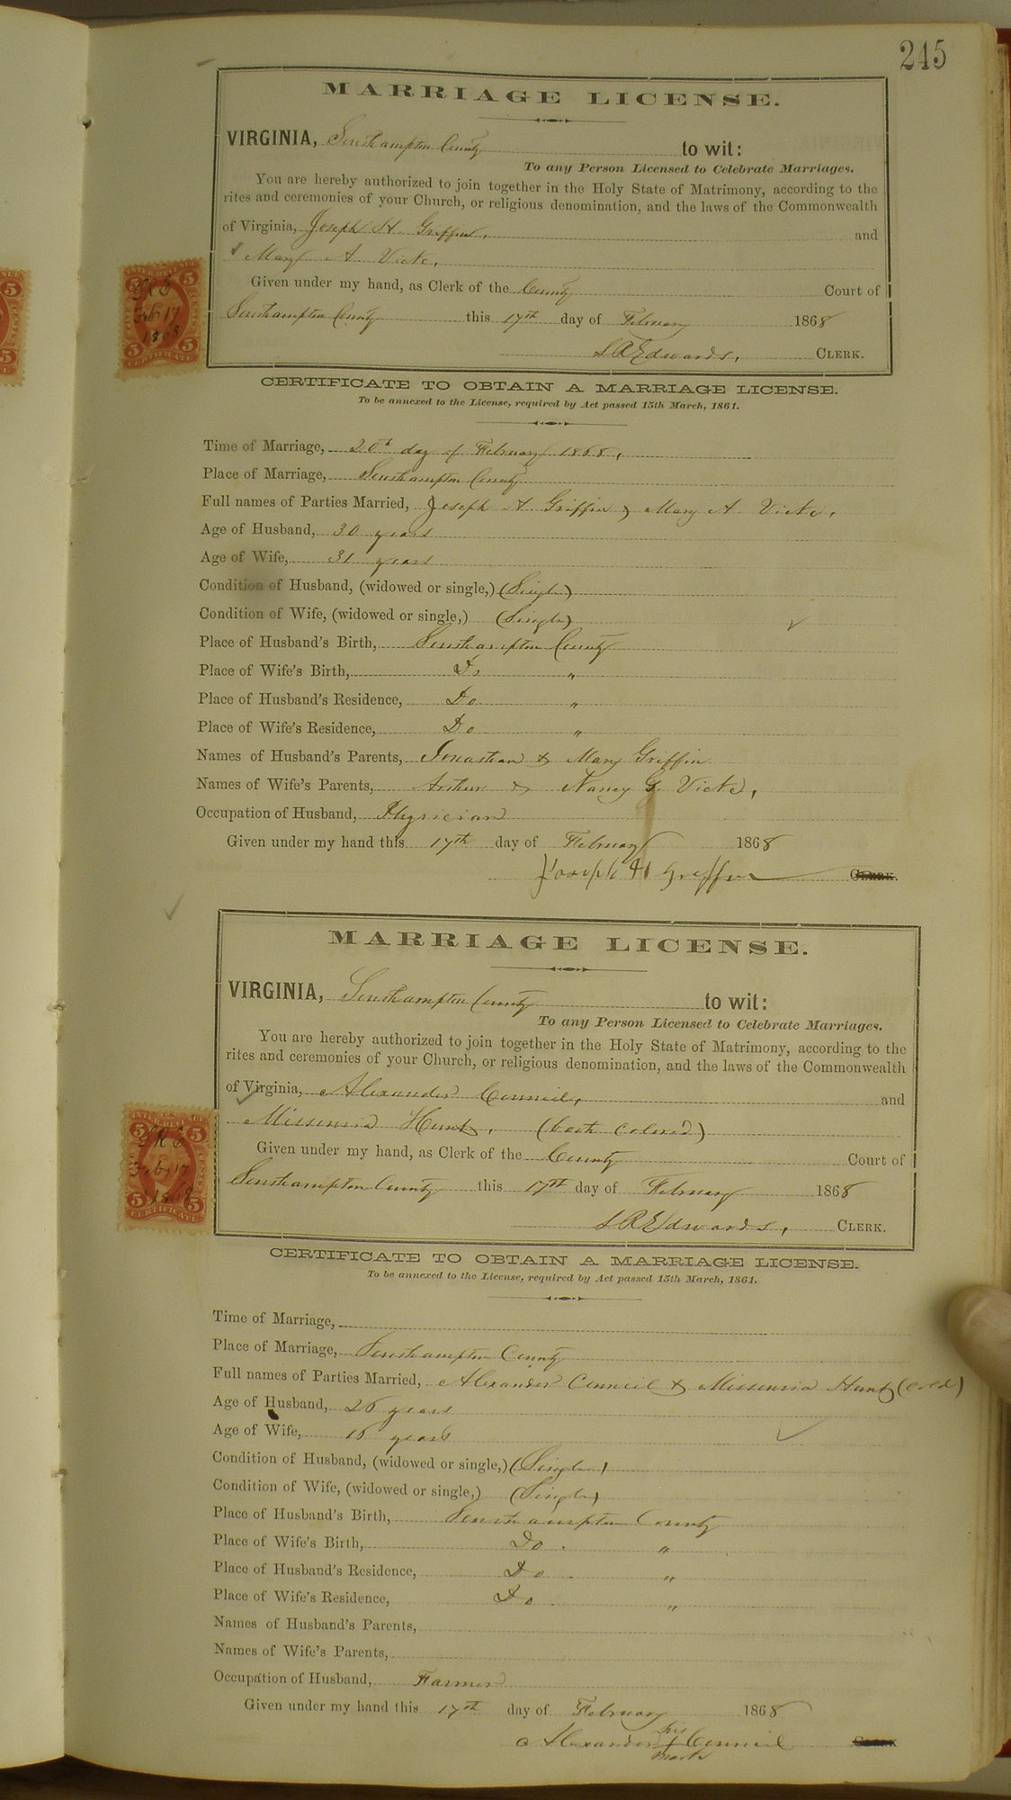 245
MARRIAGE LICENSE.
VIRGINIA, Southampton County to wit:
To any Person Licensed to Celebrate Marriages.
You are hereby authorized to join together in the Holy State of Matrimony, according to the
rites and ceremonies of your Church, or religious denomination, and the laws of the Commonwealth
of Virginia, Joseph H. Griffin, and
Mary A Vick,
Given under my hand, as Clerk of the County Court of
Southampton County this 17th day of February 1868
L R Edwards, CLERK.
INTER. REVENUE
5 5
Feb 17
1868
5 5
CERTIFICATE
CERTIFICATE TO OBTAIN A MARRIAGE LICENSE.
To be annexed to the License, required by Act passed 15th March, 1861.
Time of Marriage, 20th day of February 1868,
Place of Marriage, Southampton County
Full names of Parties Married, Joseph H. Griffin & Mary A Vick,
Age of Husband, 30 years
Age of Wife, 31 years
Condition of Husband, (widowed or single,) (Single)
Condition of Wife, (widowed or single,) (Single)
Place of Husband's Birth, Southampton County
Place of Wife's Birth, Do "
Place of Husband's Residence, Do "
Place of Wife's Residence, Do "
Names of Husband's Parents, Jonathan & Mary Griffin
Names of Wife's Parents, Arthur & Nancy G. Vick,
Occupation of Husband, Physician
Given under my hand this 17th day of February 1868
Joseph H Griffin CLERK.
MARRIAGE LICENSE.
VIRGINIA, Southampton County to wit:
To any Person Licensed to Celebrate Marriages.
You are hereby authorized to join together in the Holy State of Matrimony, according to the
rites and ceremonies of your Church, or religious denomination, and the laws of the Commonwealth
of Virginia, Alexander Council, and
Missouria Hunt, (both colored)
Given under my hand, as Clerk of the County Court of
Southampton County this 17th day of February 1868
L R Edwards, CLERK.
INTER. REVENUE
5 5
Feb 17
1868
5 5
CERTIFICATE
CERTIFICATE TO OBTAIN A MARRIAGE LICENSE.
To be annexed to the License, required by Act passed 15th March, 1861.
Time of Marriage,
Place of Marriage, Southampton County
Full names of Parties Married, Alexander Council & Missouria Hunt (cold)
Age of Husband, 26 years
Age of Wife, years
Condition of Husband, (widowed or single,) (Single)
Condition of Wife, (widowed or single,) (Single)
Place of Husband's Birth, Southampton County
Place of Wife's Birth, Do. "
Place of Husband's Residence, Do. "
Place of Wife's Residence, Do. "
Names of Husband's Parents,
Names of Wife's Parents,
Occupation of Husband, Farmer
Given under my hand this 17th day of February 1868
Alexander his Council CLERK
mark